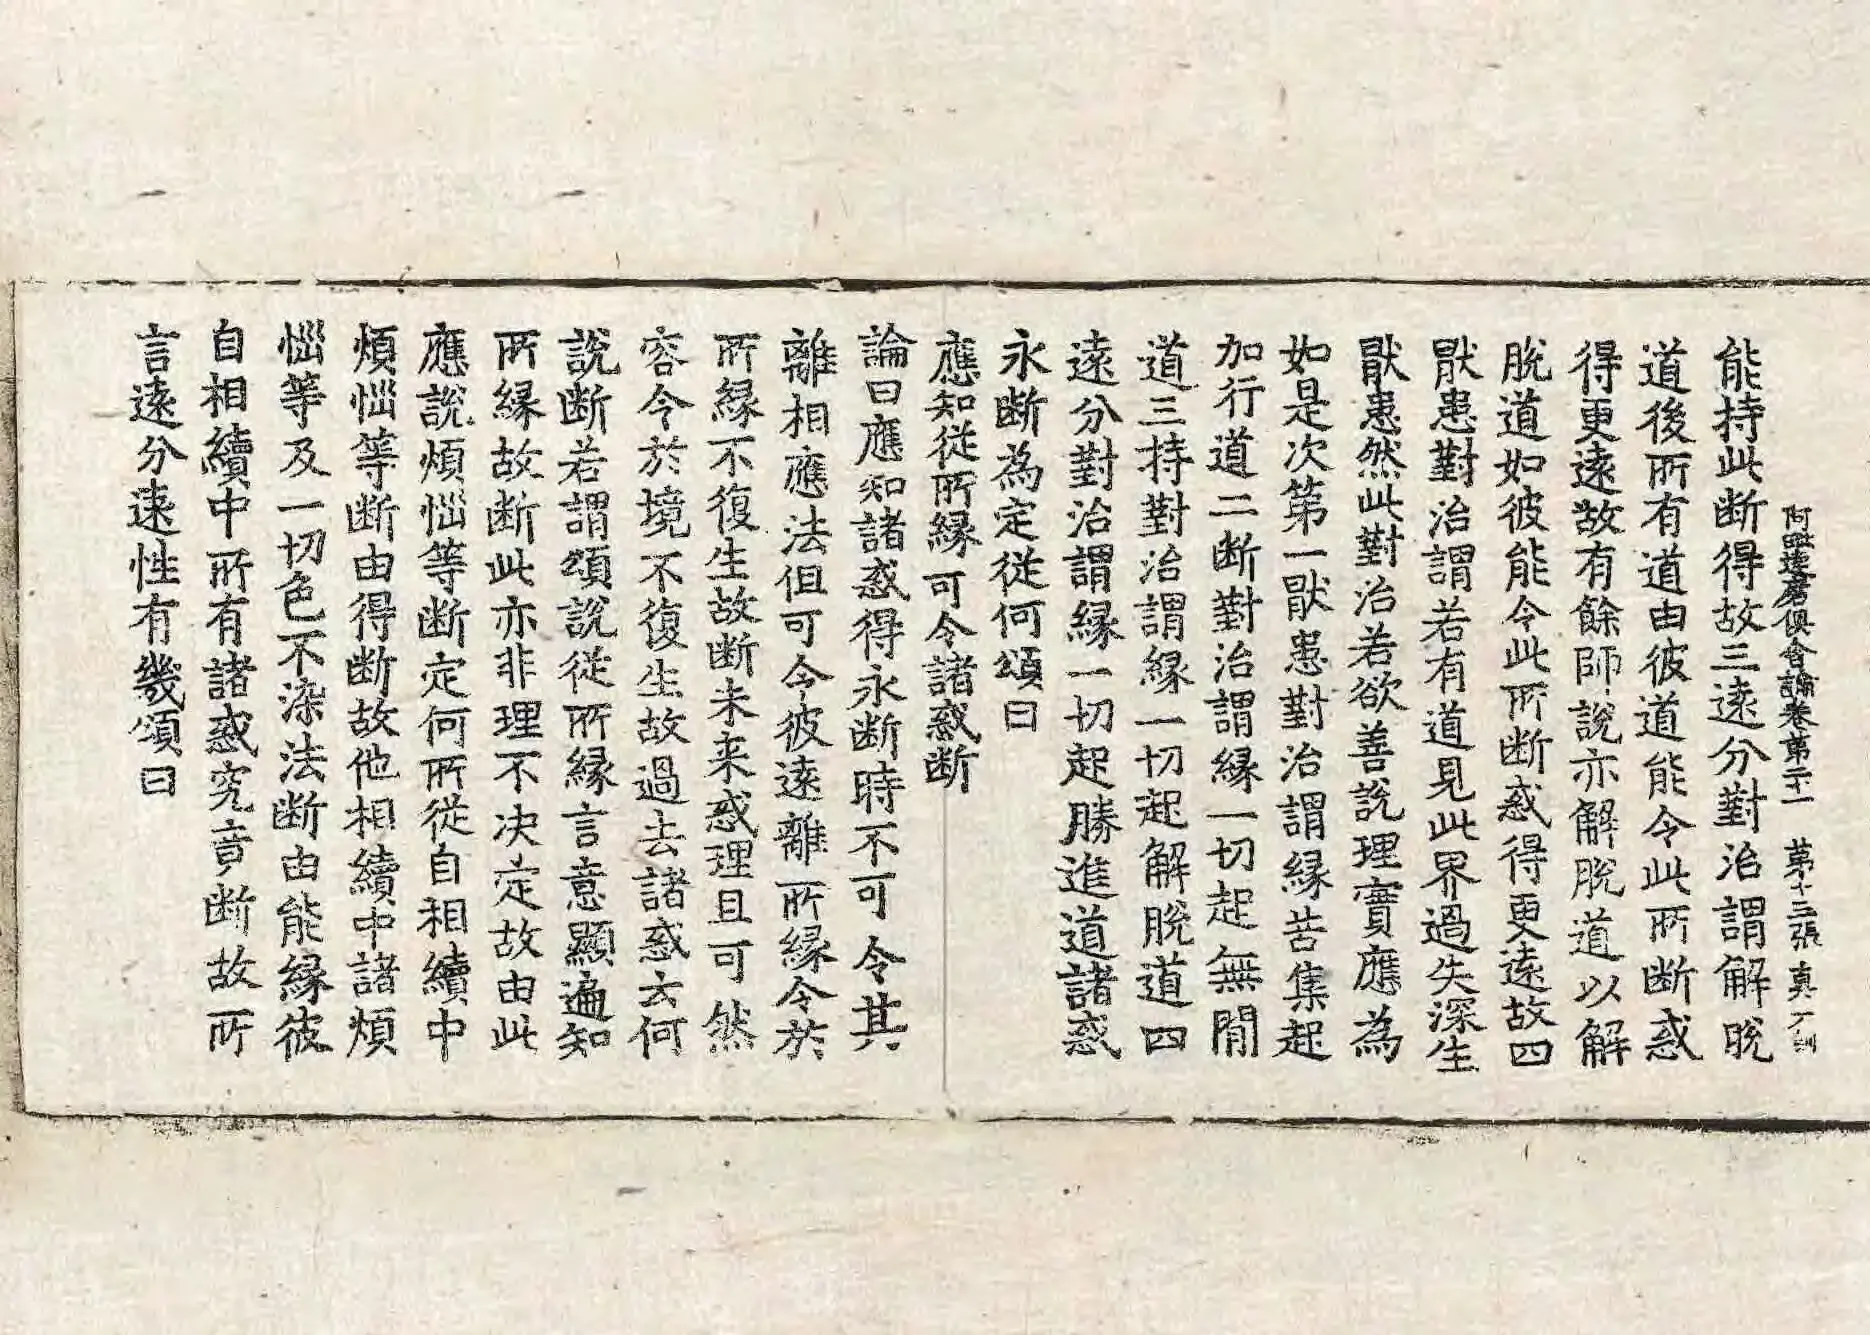 阿毗達磨俱舍論卷第二十一 第十三張 真
能持此断得故三遠分對治謂解脫
道後所有道由彼道能令此所断惑
得更遠故有餘師說亦解脫道以解
脫道如彼能令此所断惑得更遠故四
猒患對治謂若有道見此界過失深生
猒患然此對治若欲善說理實應為
如是次第一猒患對治謂緣苦集起
加行道二断對治謂緣一切起無間
道三持對治謂緣一切起解脫道四
遠分對治謂緣一切起勝進道諸惑
永断為定從何頌曰
應知從所緣可令諸惑断
論曰應知諸惑得永断時不可令其
離相應法但可令彼遠離所緣令於
所緣不復生故断未来惑理且可然
容令於境不復生故過去諸惑云何
說断若謂頌說從所緣言意顯遍知
所緣故断此亦非理不决定故由此
應說煩惱等断定何所從自相續中
煩惱等断由得断故他相續中諸煩
惱等及一切色不染法断由能緣彼
自相續中所有諸惑究竟断故所
言遠分遠性有幾頌曰